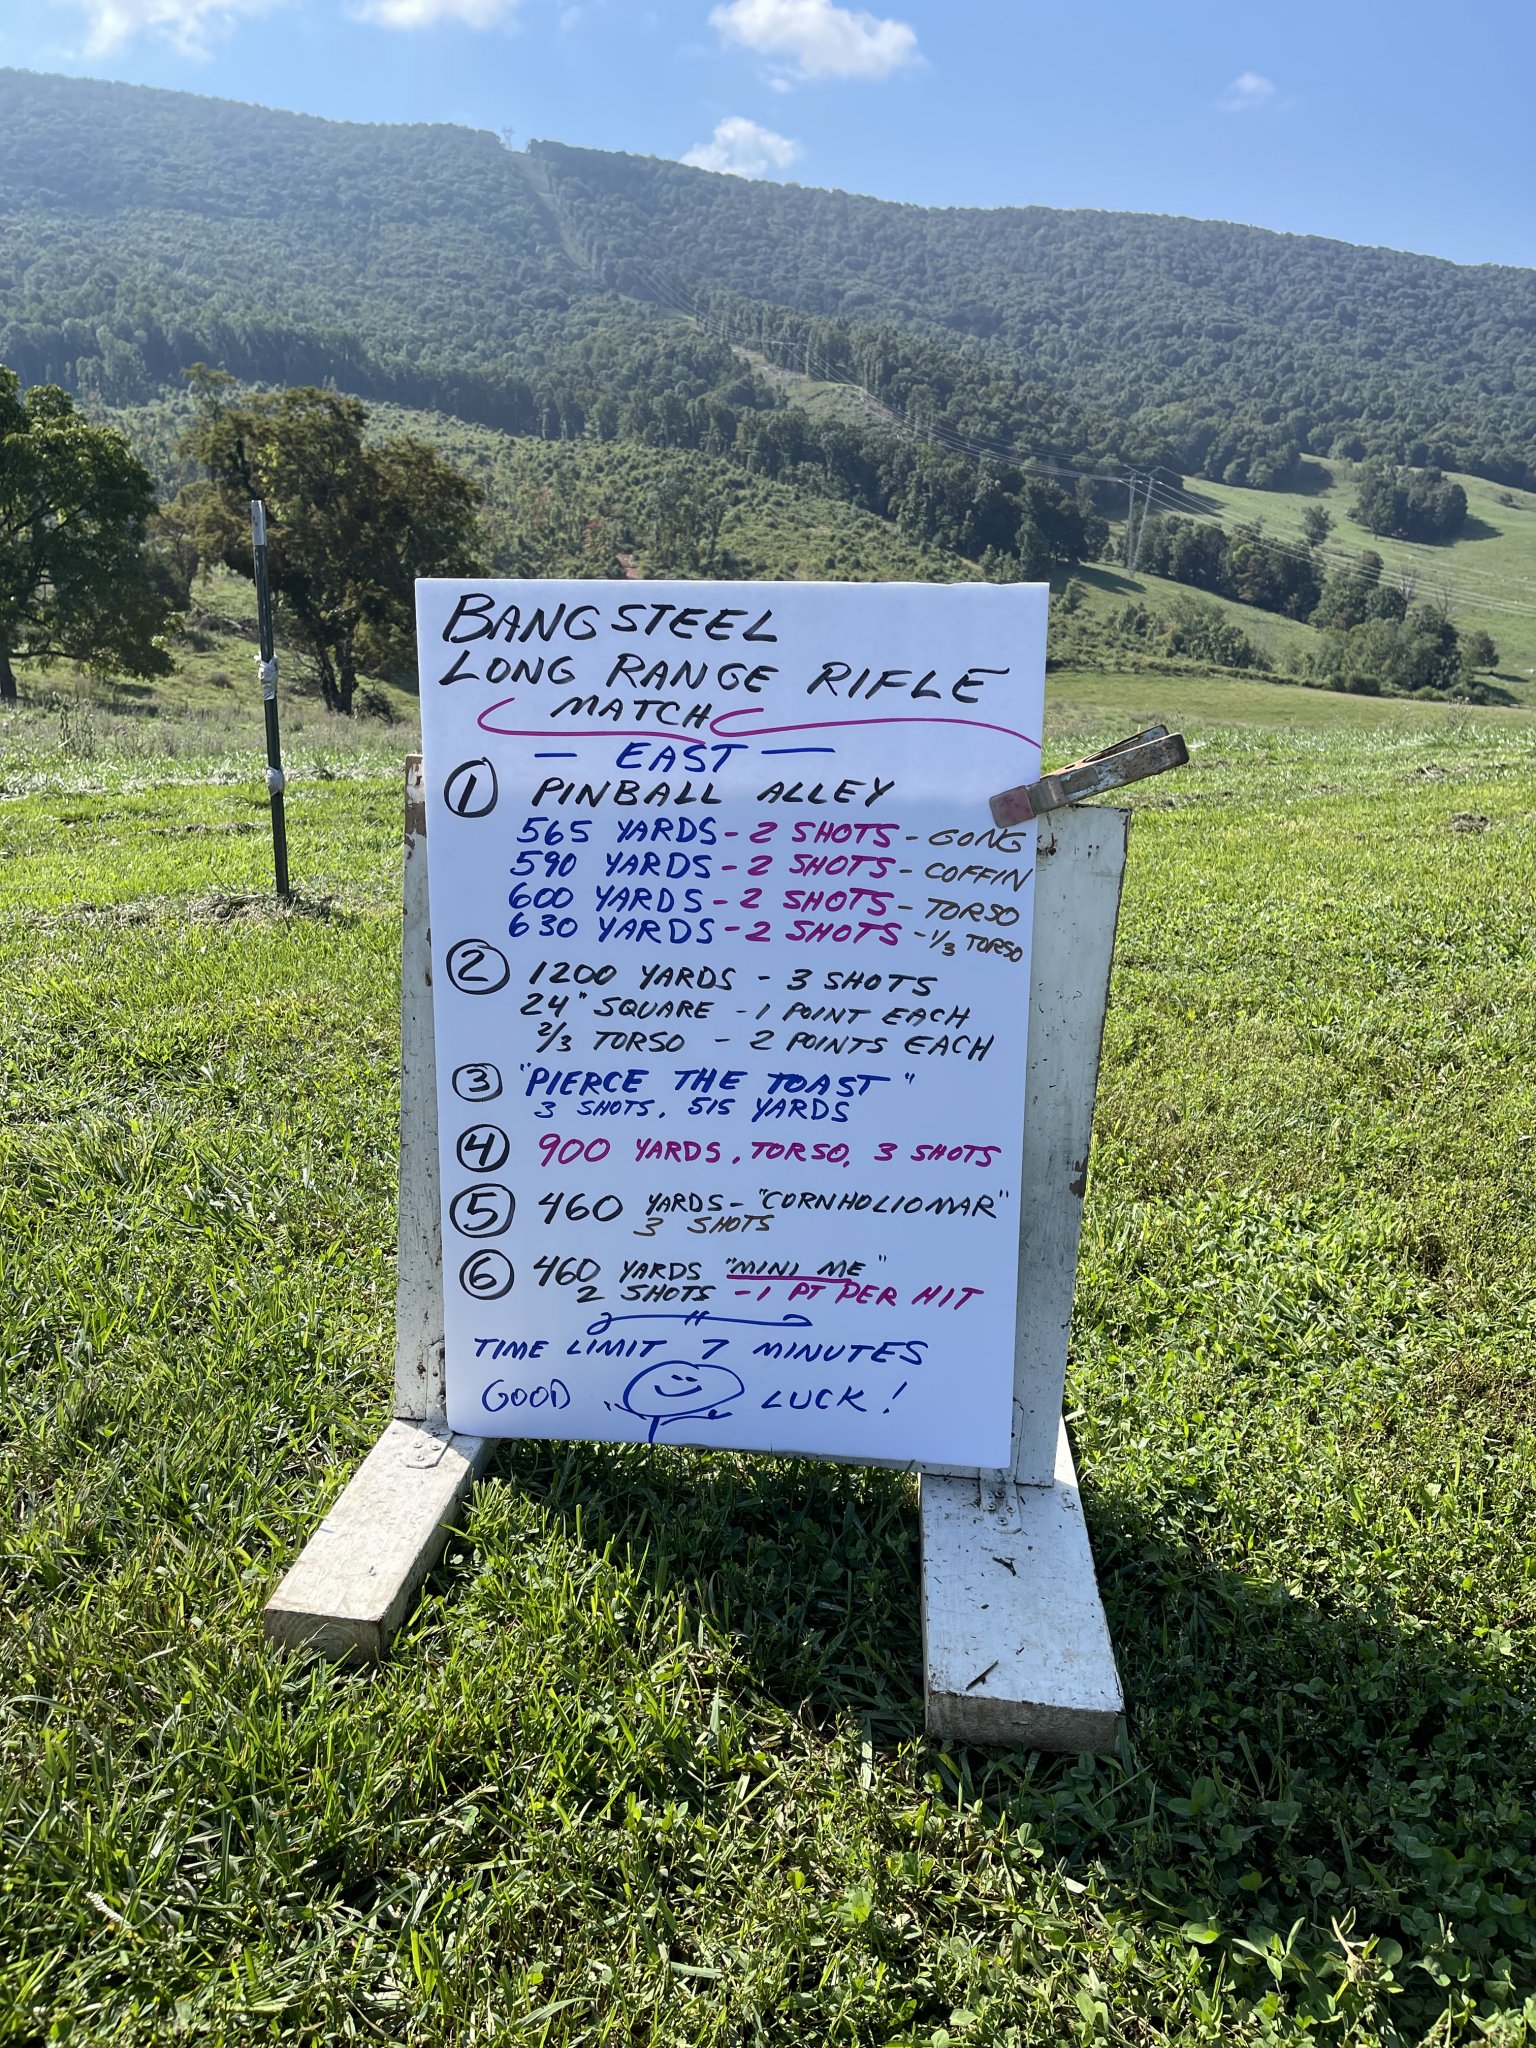 BANG STEEL
LONG RANGE RIFLE
MATCH
— EAST —
① PINBALL ALLEY
565 YARDS - 2 SHOTS - GONG
590 YARDS - 2 SHOTS - COFFIN
600 YARDS - 2 SHOTS - TORSO
630 YARDS - 2 SHOTS - 1/3 TORSO
② 1200 YARDS - 3 SHOTS
24" SQUARE - 1 POINT EACH
2/3 TORSO - 2 POINTS EACH
③ "PIERCE THE TOAST"
3 SHOTS, 515 YARDS
④ 900 YARDS, TORSO, 3 SHOTS
⑤ 460 YARDS - "CORNHOLIOMAR"
3 SHOTS
⑥ 460 YARDS "MINI ME"
2 SHOTS - 1 PT PER HIT
TIME LIMIT 7 MINUTES
GOOD LUCK!